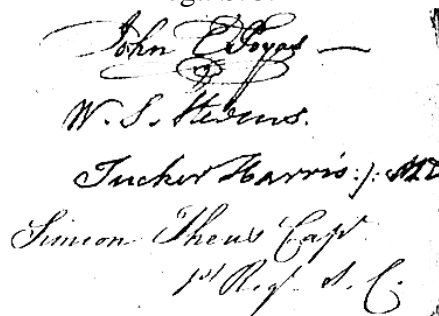 John E Poyas —
W. S. Stevens.
Tucker Harris:). MD
Simeon Theus Capt
1st Regt S. C.